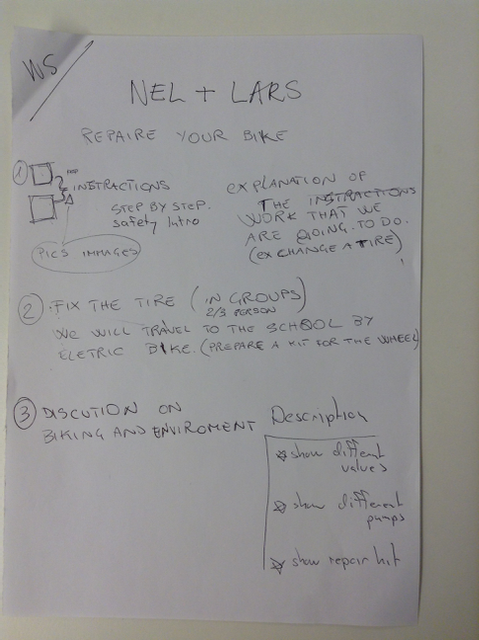 WS
NEL + LARS
REPAIRE YOUR BIKE
1
INSTRACTIONS
STEP BY STEP.
safety Intro
PICS IMMAGES
EXPLANATION OF
THE INSTRACTIONS
WORK THAT WE
ARE GOING TO DO.
(EX CHANGE A TIRE)
2 FIX THE TIRE (IN GROUPS)
2/3 PERSON
WE WILL TRAVEL TO THE SCHOOL BY
ELETRIC BIKE. (PREPARE A KIT FOR THE WHEEL)
3 DISCUTION ON
BIKING AND ENVIROMENT
Description
show different
values
show different
pumps
show repair kit